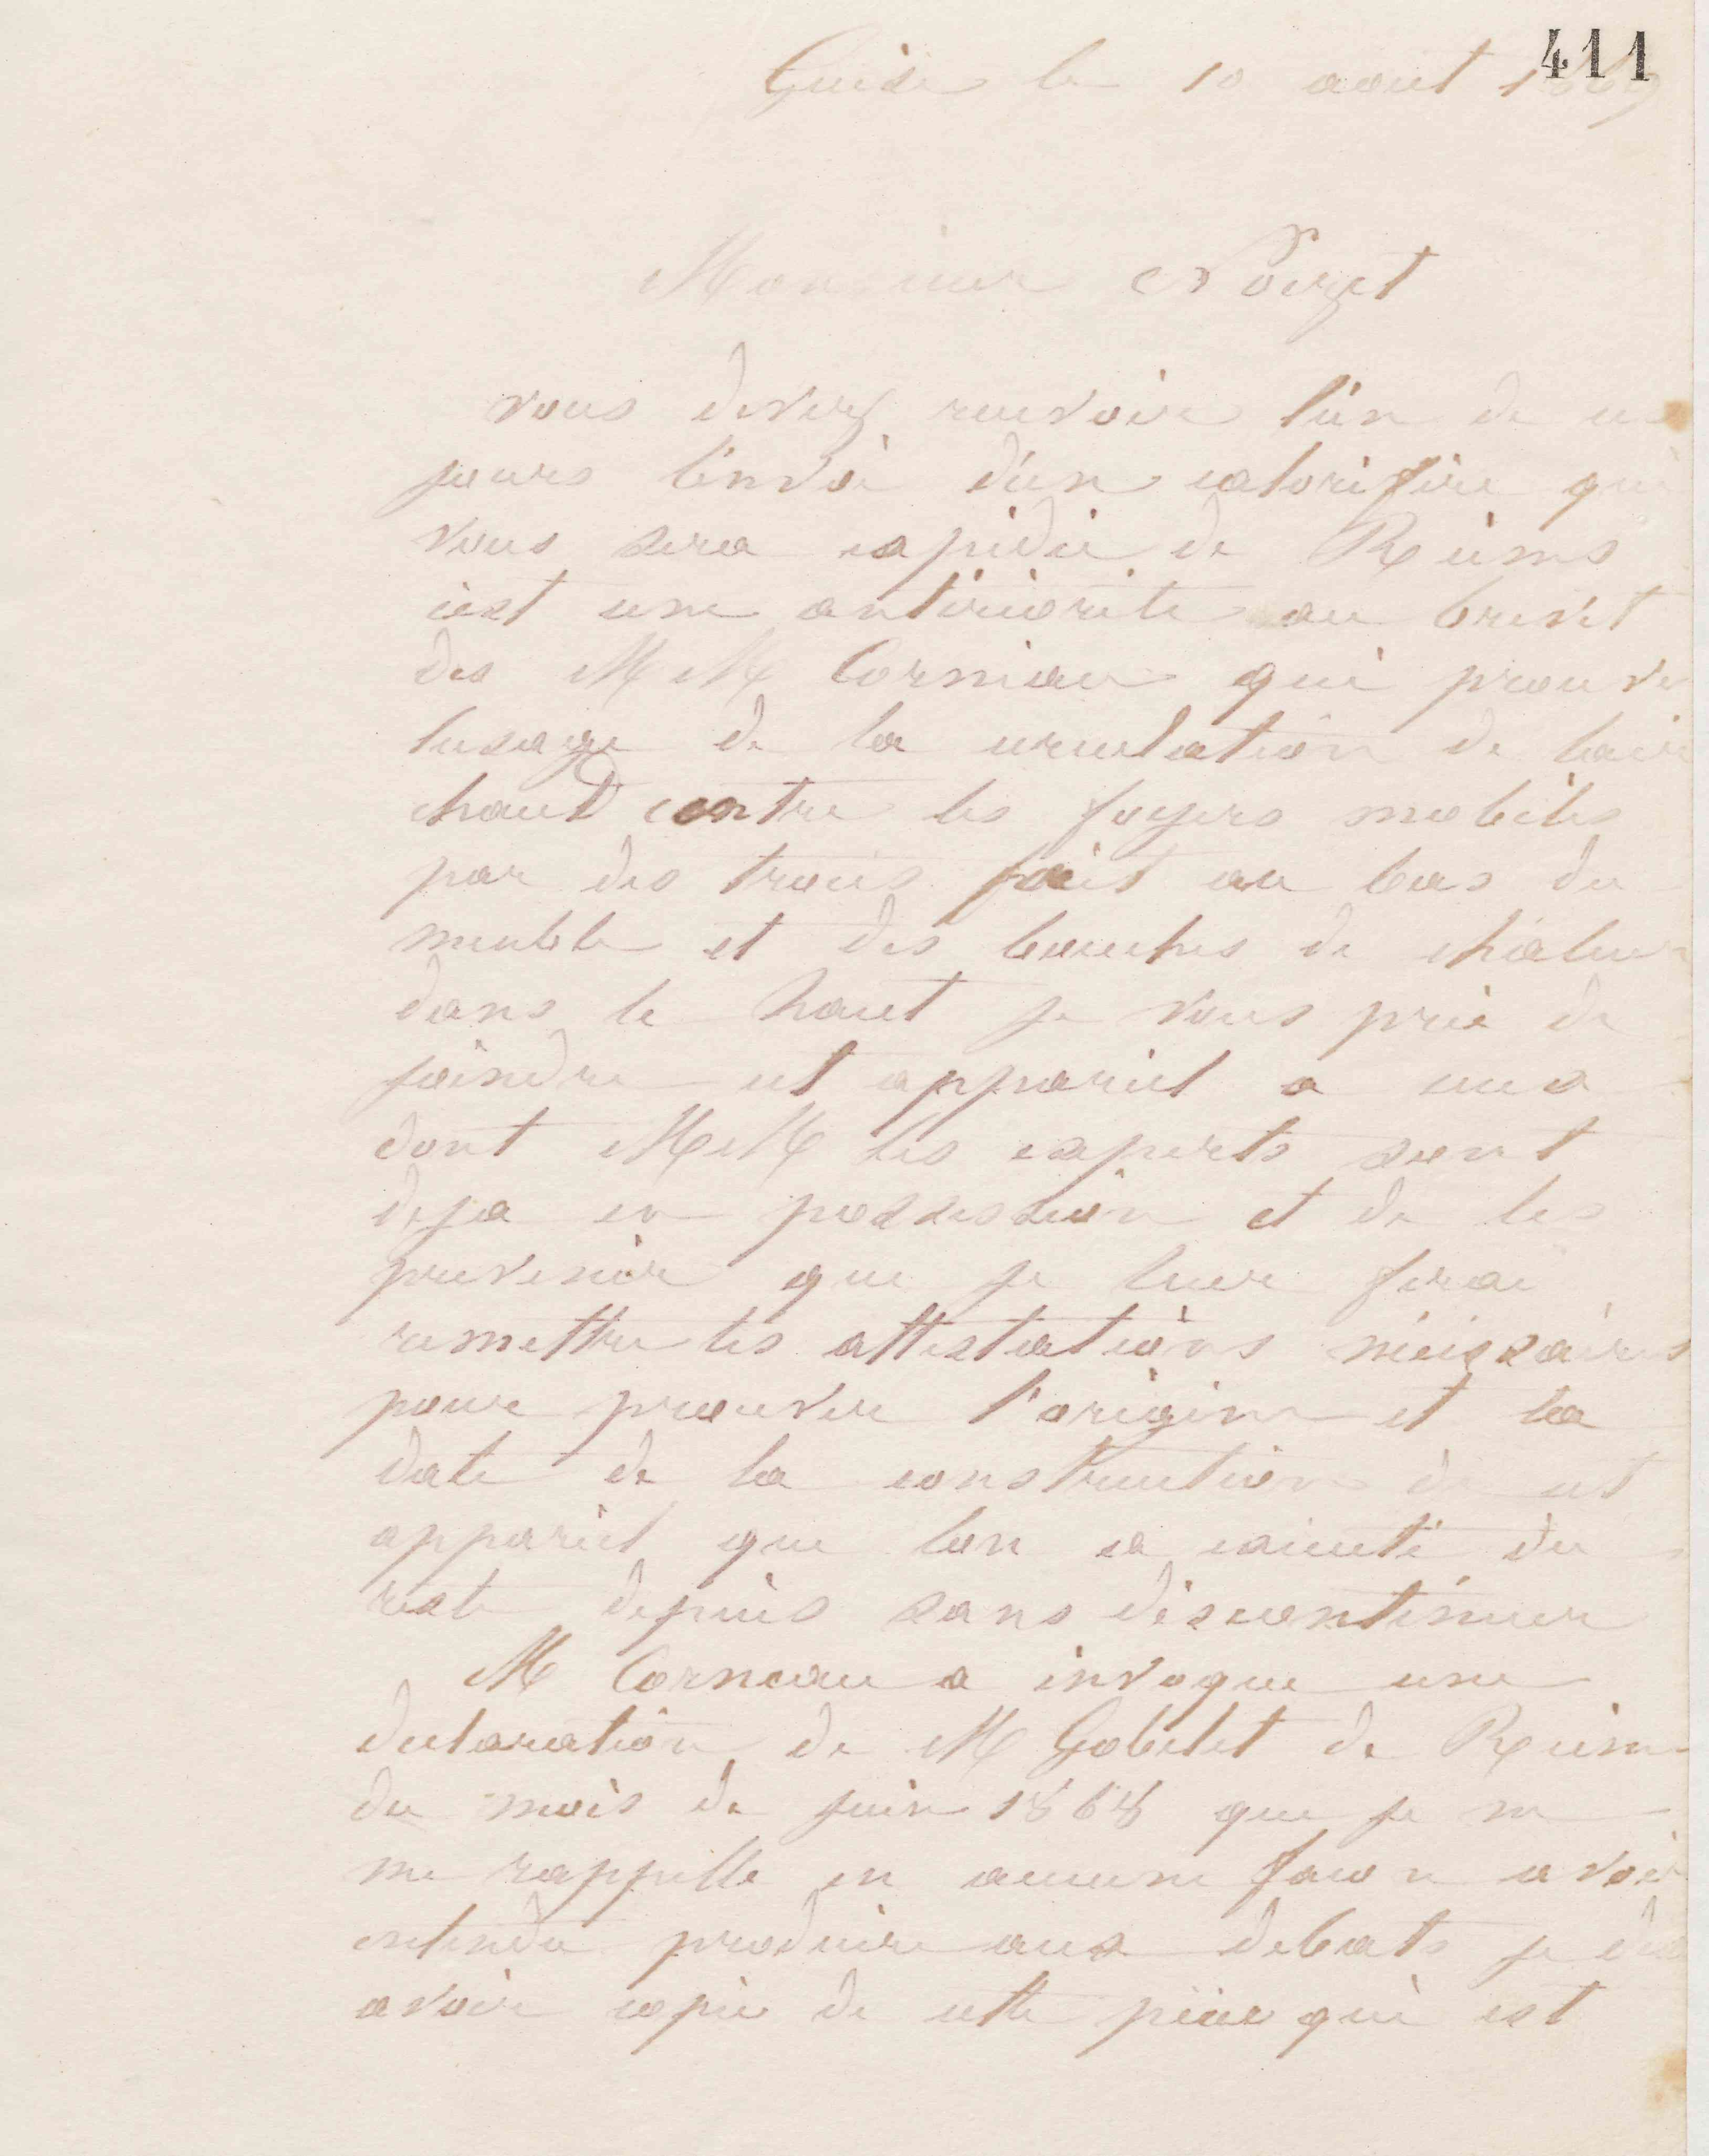 411
Guise le 10 aout 1869
Monsieur Poizet
vous devez recevoir l'un de ces
jours l'envoi d'un calorifère qui
vous sera expédié de Reims
c'est une antériorité au brevet
des MM Corneau qui prouve
lusage de la circulation de lair
chaud contre les foyers mobiles
par des trous fait au bas du
meuble et des bouches de chaleur
dans le haut je vous prie de
joindre cet appareil a ceux
dont MM les experts sont
deja en possession et de les
prevenir que je leur ferai
remettre les attestations nécessaires
pour prouver l'origine et la
date de la construction de cet
appareil que lon a exécuté du
reste depuis sans discontinuer
M Corneau a invoque une
declaration de M Gobelet de Reims
du mois de juin 1868 que je ne
me rappelle en aucune facon avoir
entendu produire aux debats je
avoir copie de cette pièce qui est